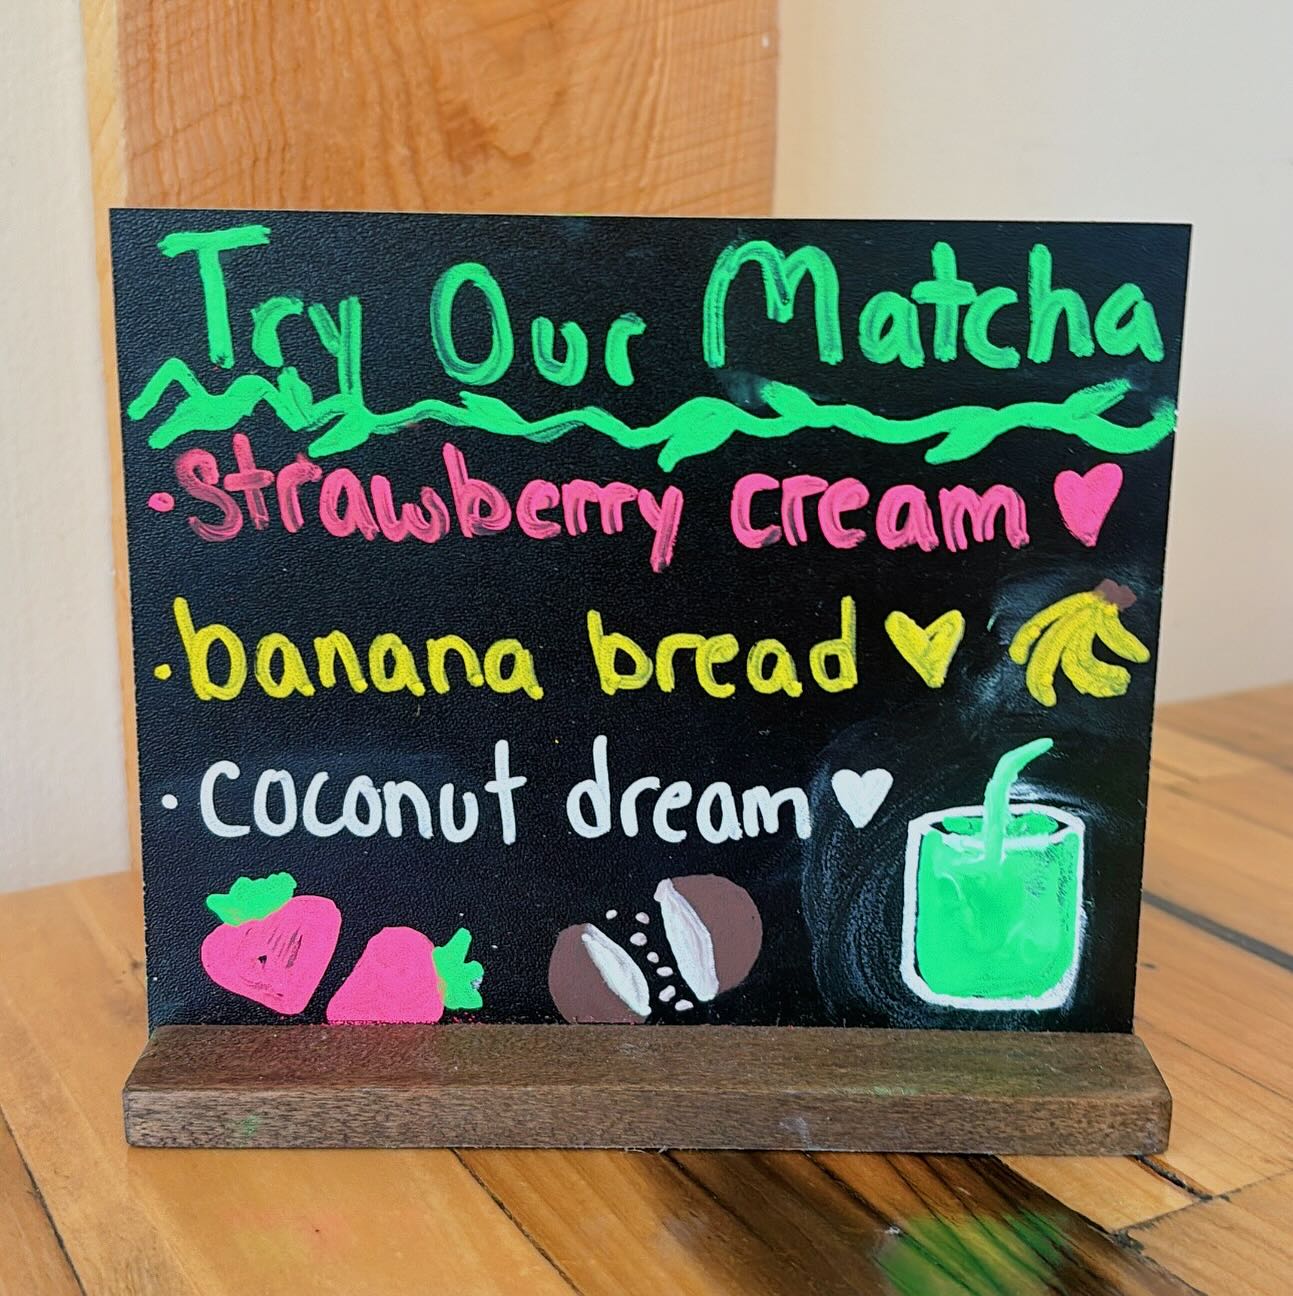 Try Our Matcha
• strawberry cream ♥
• banana bread ♥
• coconut dream ♥